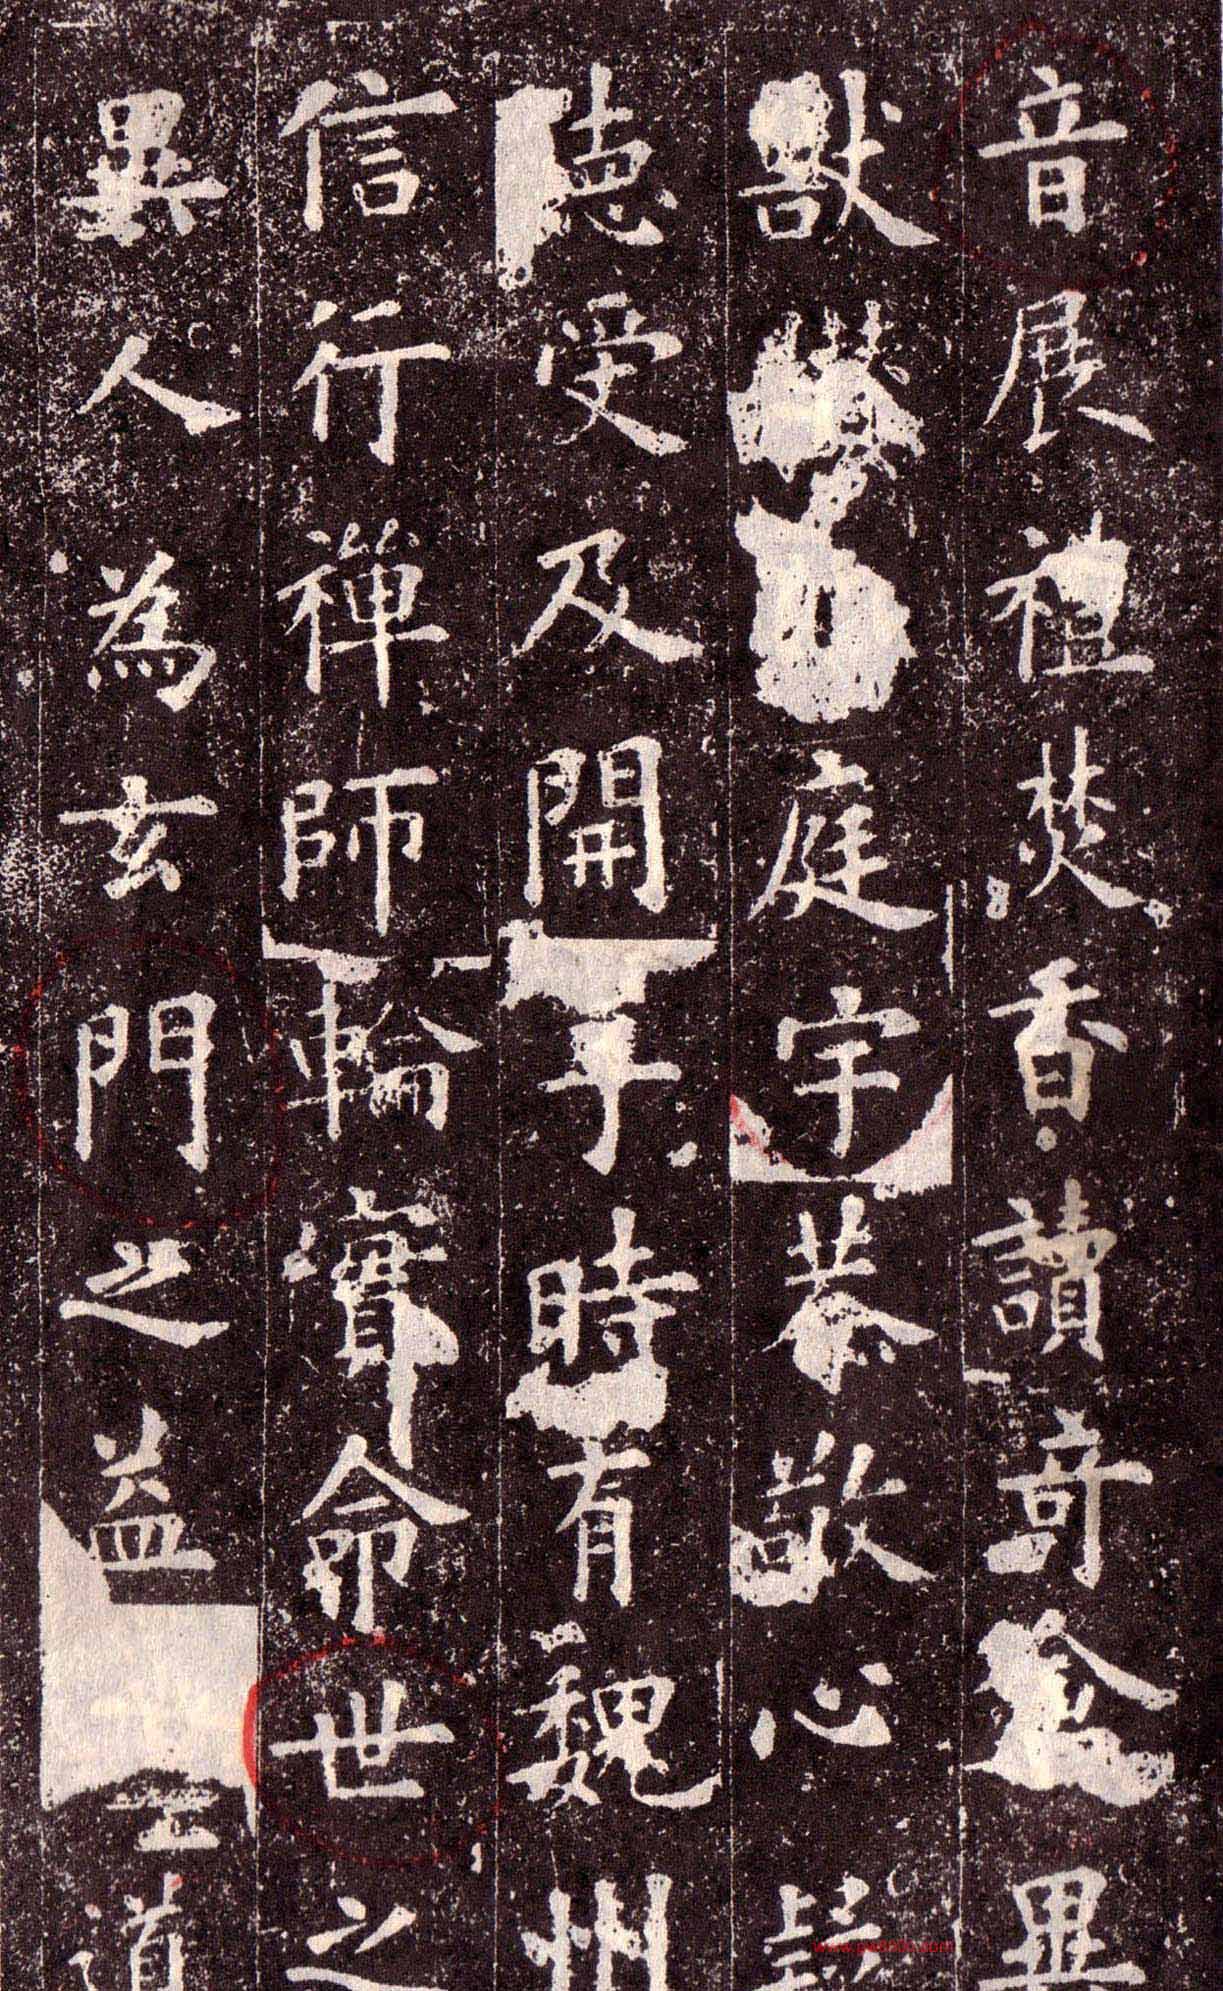 音展禮焚香讀竒畢
獸庭宇恭敬心疑
聽受及開時有魏州
信行禪師輪實命世之
異人為玄門之益道